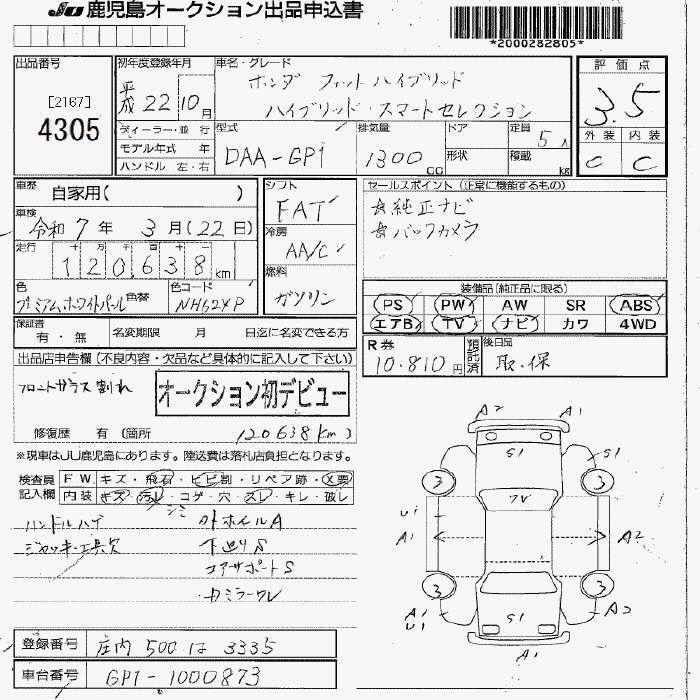 JU 鹿児島オークション出品申込書
*2000282805*
出品番号
[2167]
4305
初年度登録年月
平成 22 10 月
ディーラー・並 行
モデル年式 年
ハンドル 左・右
車名・グレード
ホンダ フィットハイブリッド
ハイブリッド・スマートセレクション
型式 DAA-GP1
排気量 1300 cc
ドア
形状
定員 5 人
積載 kg
評 価 点
3.5
外 装 内 装
C C
車歴 自家用( )
車検 令和 7 年 3 月(22 日)
走行 十 万 千 百 十 一
120,638 km
色 プレミアムホワイトパール 色替
色コード NH624P
シフト FAT
冷房 AA/C
燃料 ガソリン
セールスポイント (正常に機能するもの)
☆純正ナビ
☆バックカメラ
装備品(純正品に限る)
PS PW AW SR ABS
エアB TV ナビ カワ 4WD
保証書 有・無
名変期限 月 日迄に名変できる方
R券 10,810 円
預託済
後日品 取・保
出品店申告欄(不良内容・欠品など具体的に記入して下さい)
フロントガラス 割れ
オークション初デビュー
修復歴 有(箇所 120638km)
※現車はJU鹿児島にあります。陸送費は落札店負担となります。
検査員記入欄
F W キズ・飛石・ヒビ割・リペア跡・X要
内 装 キズ・汚レ・コゲ・穴・スレ・キレ・破レ
シミ
ハンドルハゲ
ジャッキ・工具欠
外ホイルA
下廻りS
コアサポートS
カミラーワレ
A2 A1
S1
S1
3 3
TV
U1
A1 A2
3 3
A1 U1
S1
A2
A1
登録番号 庄内 500 は 3335
車台番号 GP1-1000873